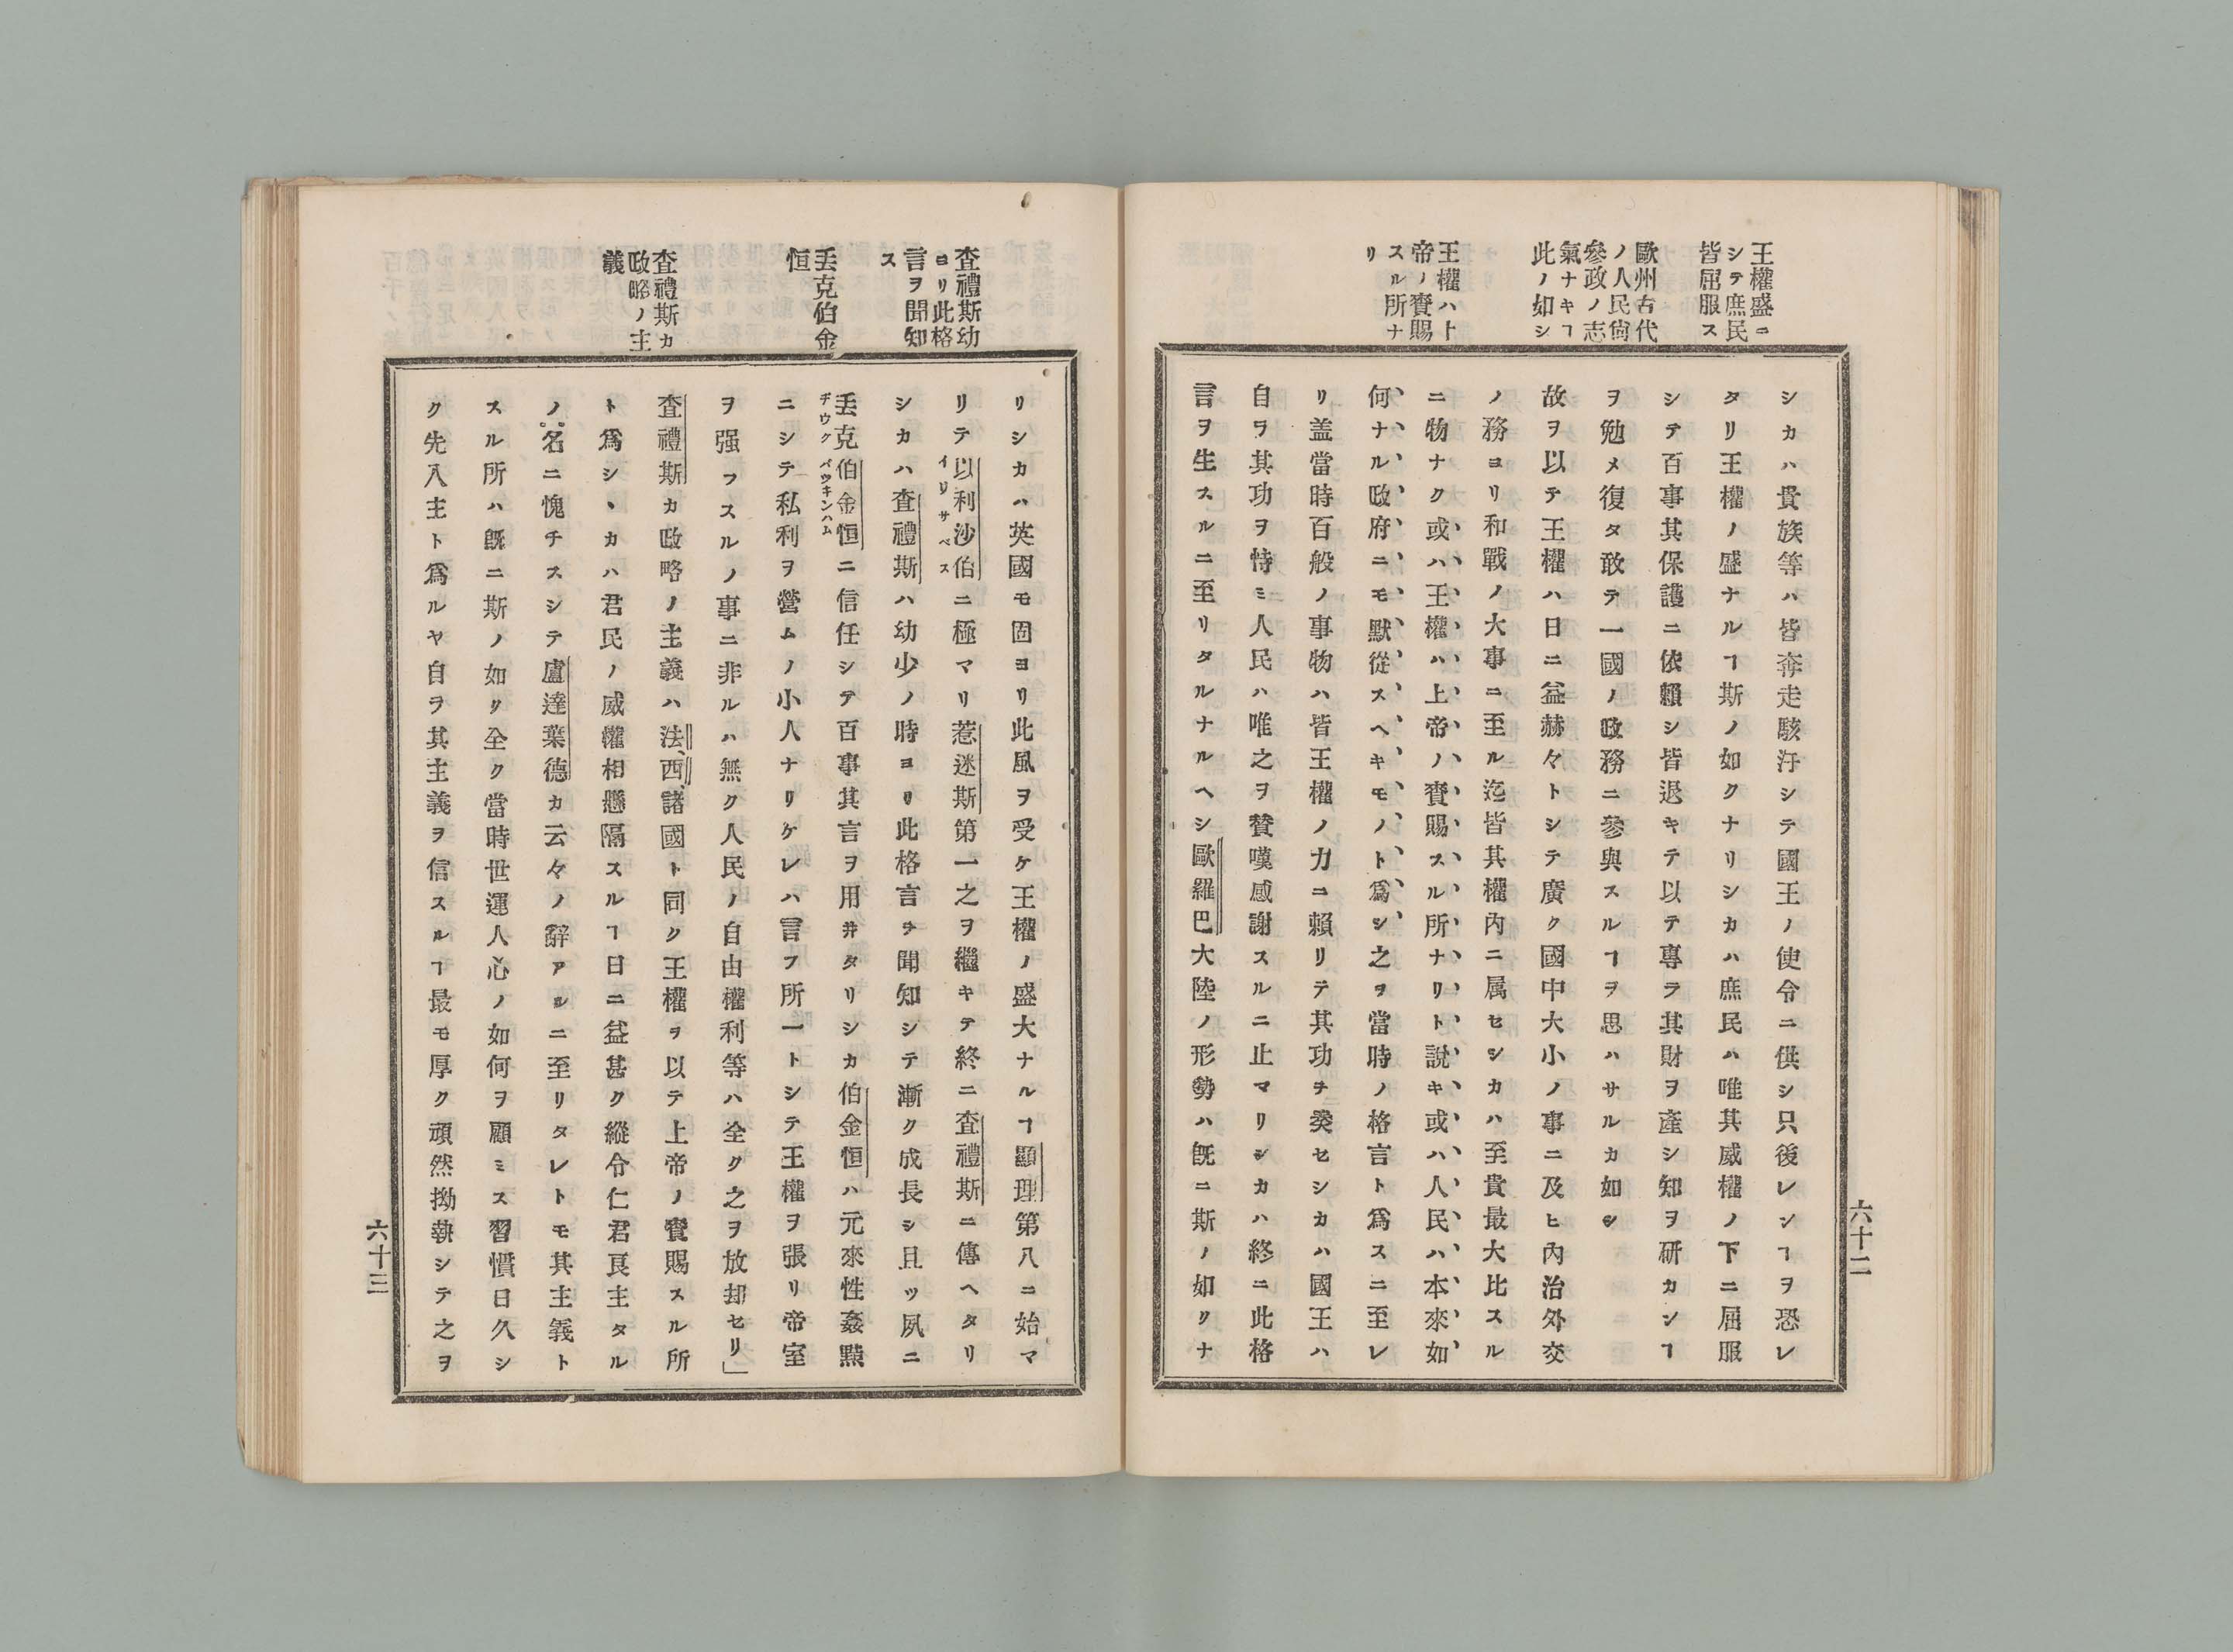 王權盛ニ
シテ庶民
皆屈服ス
歐州古代
ノ人民尙
參政ノ志
氣ナキヿ
此ノ如シ
王權ハ上
帝ノ賚賜
スル所ナ
リ
シカハ貴族等ハ皆奔走駭汗シテ國王ノ使令ニ供シ只後レンヿヲ恐レ
タリ王權ノ盛ナルヿ斯ノ如クナリシカハ庶民ハ唯其威權ノ下ニ屈服
シテ百事其保護ニ依賴シ皆退キテ以テ專ラ其財ヲ產シ知ヲ硏カンヿ
ヲ勉メ復タ敢テ一國ノ政務ニ參與スルヿヲ思ハサルカ如シ
故ヲ以テ王權ハ日ニ益赫々トシテ廣ク國中大小ノ事ニ及ヒ內治外交
ノ務ヨリ和戰ノ大事ニ至ル迄皆其權內ニ属セシカハ至貴最大比スル
ニ物ナク或ハ王權ハ上帝ノ賚賜スル所ナリト說キ或ハ人民ハ本來如
何ナル政府ニモ默從スヘキモノト爲シ之ヲ當時ノ格言ト爲スニ至レ
リ盖當時百般ノ事物ハ皆王權ノ力ニ賴リテ其功ヲ奏セシカハ國王ハ
自ラ其功ヲ恃ミ人民ハ唯之ヲ賛嘆感謝スルニ止マリシカハ終ニ此格
言ヲ生スルニ至リタルナルヘシ歐羅巴大陸ノ形勢ハ旣ニ斯ノ如クナ
六十二
査禮斯幼
ヨリ此格
言ヲ聞知
ス
王克伯金
恒
査禮斯カ
政略ノ主
義
リシカハ英國モ固ヨリ此風ヲ受ケ王權ノ盛大ナルヿ顯理第八ニ始マ
リテ以利沙伯ニ極マリ惹迷斯第一之ヲ繼キテ終ニ査禮斯ニ傳ヘタリ
イリサベス
シカハ査禮斯ハ幼少ノ時ヨリ此格言ヲ聞知シテ漸ク成長シ且ツ夙ニ
克伯金恒ニ信任シテ百事其言ヲ用井タリシカ伯金恒ハ元來性姦黠
ヂウク バウキンハム
ニシテ私利ヲ營ムノ小人ナリケレハ言フ所一トシテ王權ヲ張リ帝室
ヲ强フスルノ事ニ非ルハ無ク人民ノ自由權利等ハ全ク之ヲ放却セリ」
査禮斯カ政略ノ主義ハ法西諸國ト同ク王權ヲ以テ上帝ノ賚賜スル所
ト爲シヽカハ君民ノ威權相懸隔スルヿ日ニ益甚ク縱令仁君良主タル
ノ名ニ愧チスシテ盧達葉德カ云々ノ辭アルニ至リタレトモ其主義ト
スル所ハ旣ニ斯ノ如ク全ク當時世運人心ノ如何ヲ顧ミス習慣日久シ
ク先入主ト爲ルヤ自ヲ其主義ヲ信スルヿ最モ厚ク頑然拗執シテ之ヲ
六十三